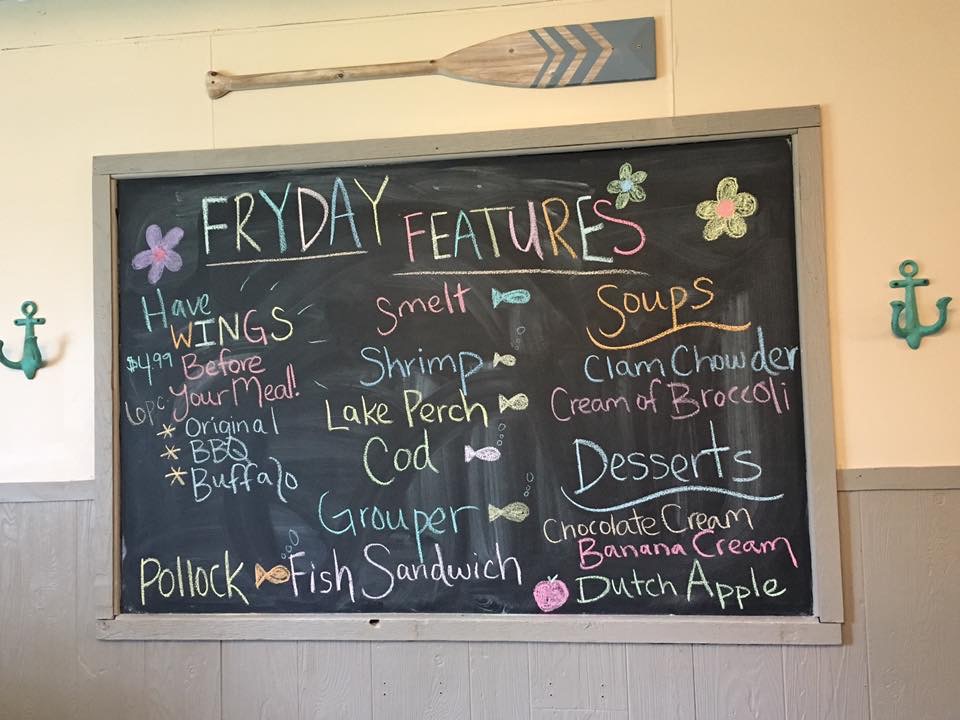 FRYDAY FEATURES
Have
WINGS
$4.99 Before
6pc Your Meal!
* Original
* BBQ
* Buffalo
Smelt
Shrimp
Lake Perch
Cod
Grouper
Pollock Fish Sandwich
Soups
Clam Chowder
Cream of Broccoli
Desserts
Chocolate Cream
Banana Cream
Dutch Apple